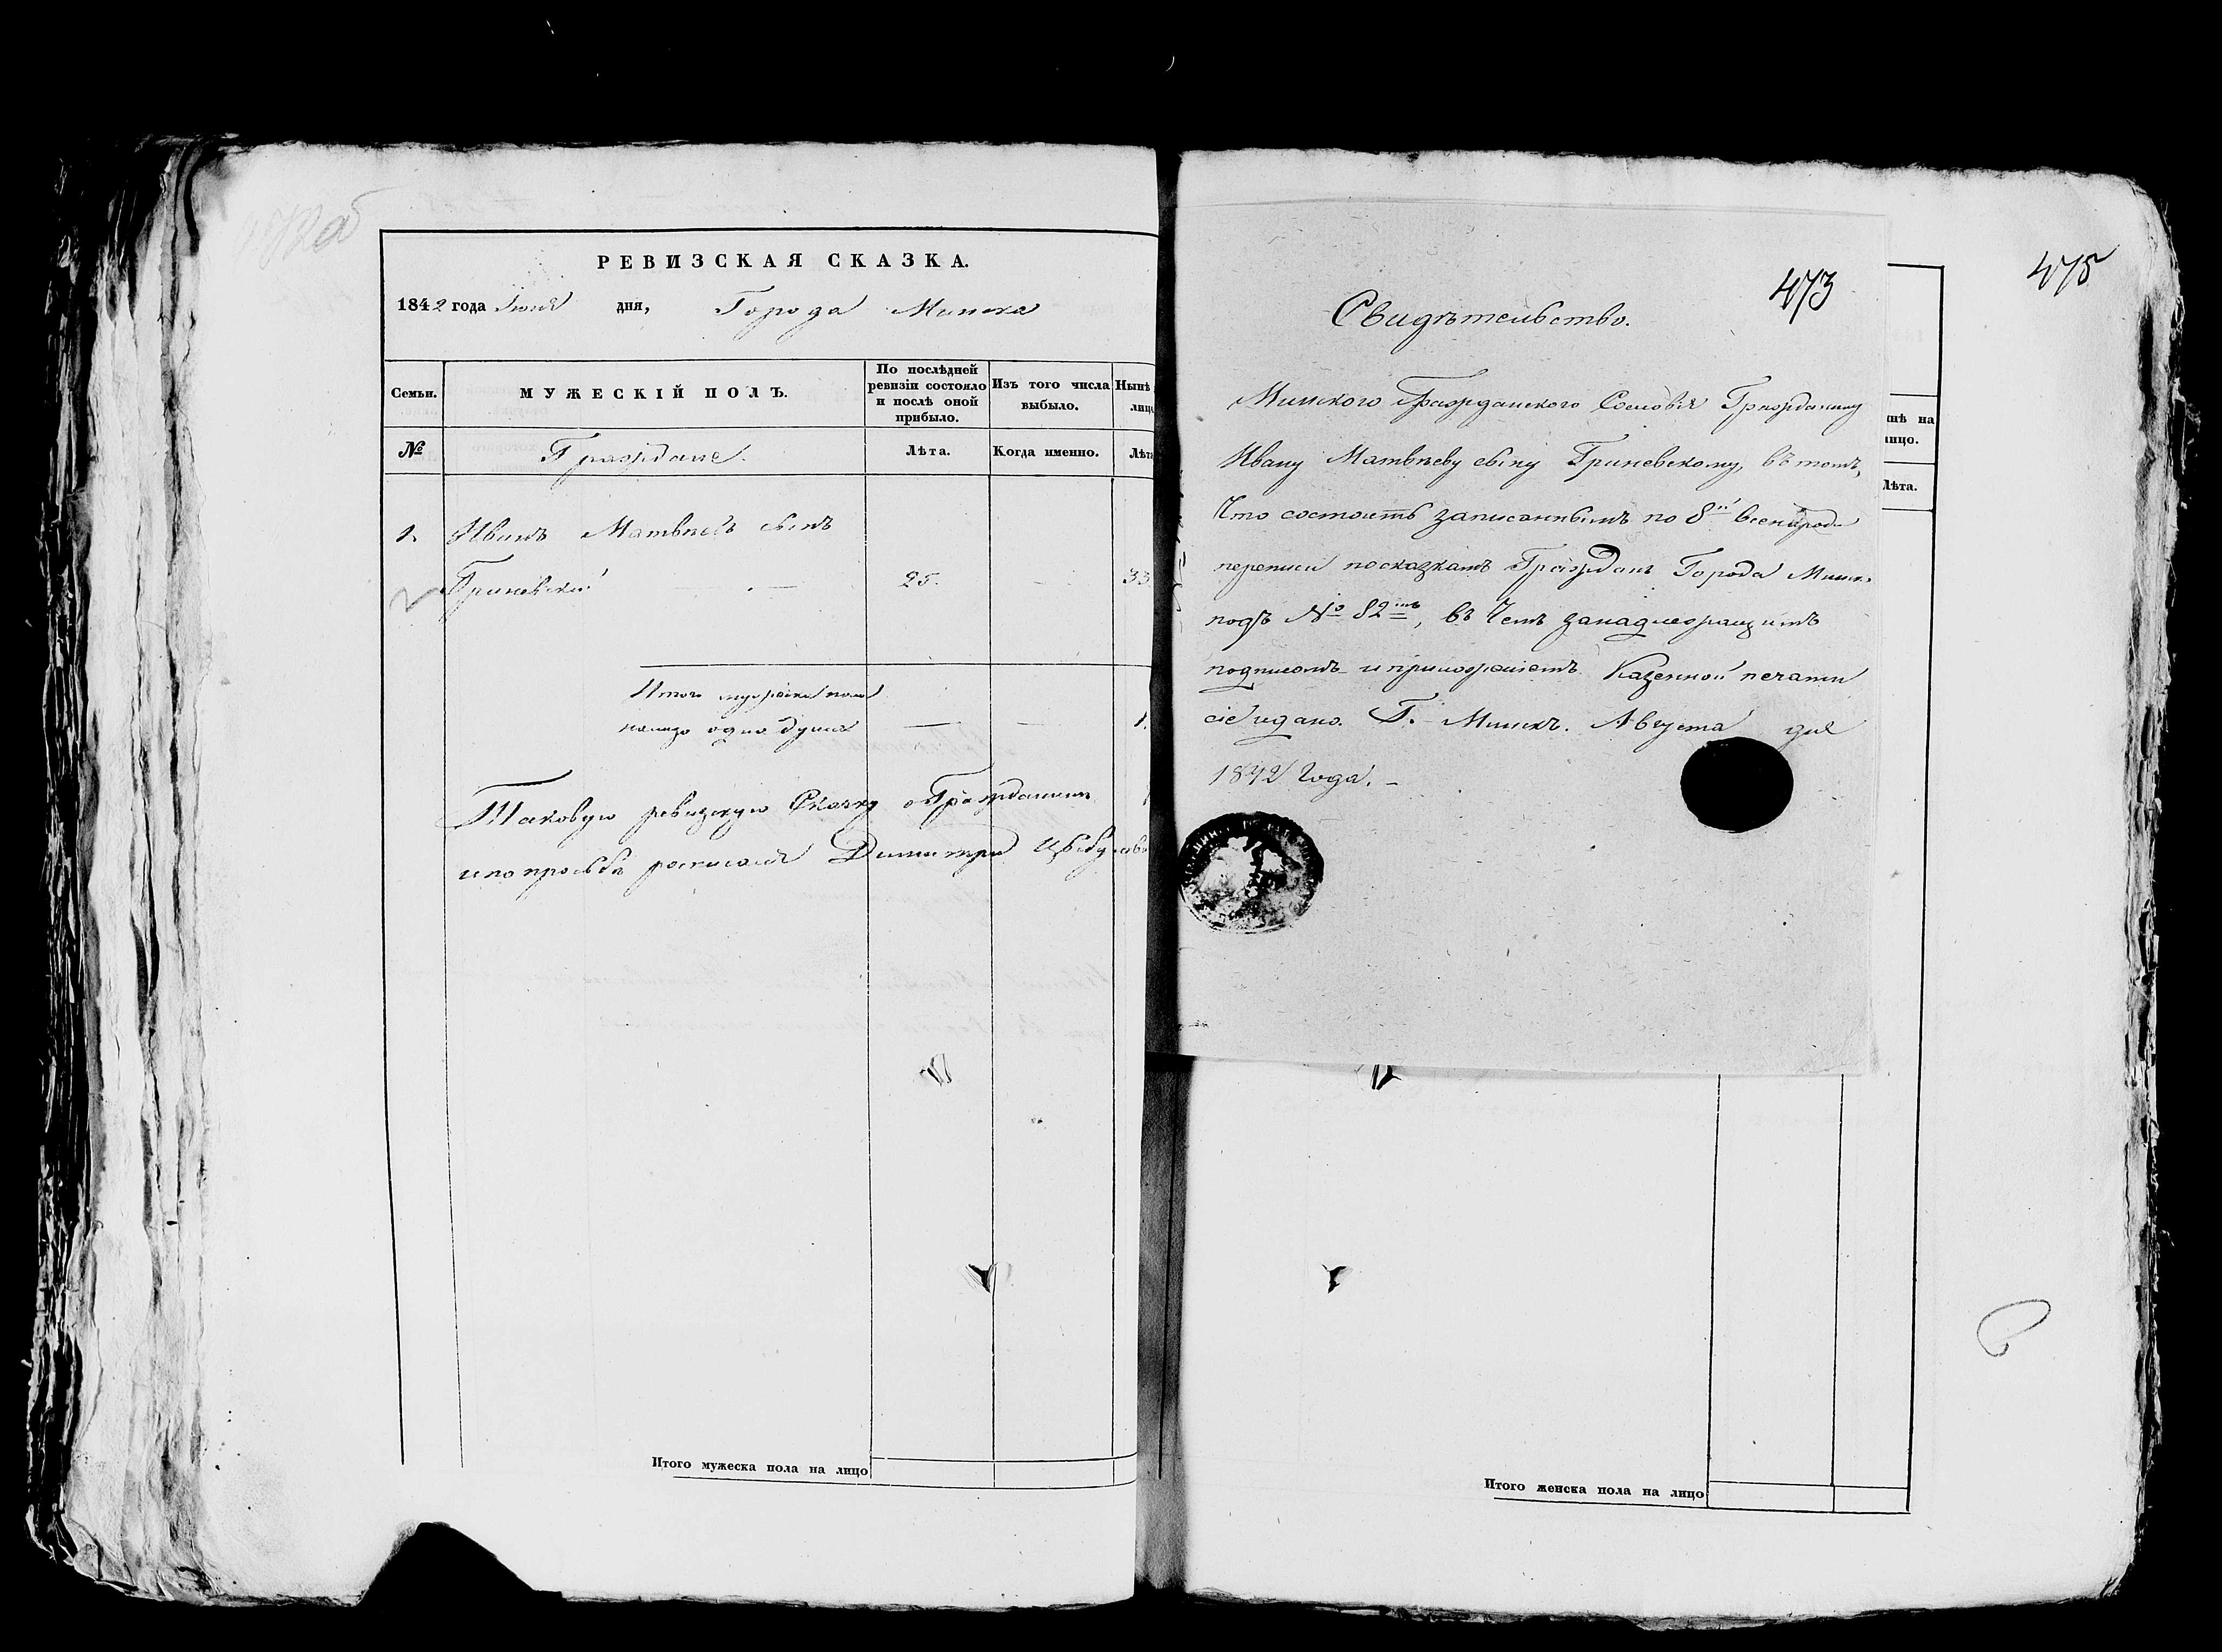 РЕВИЗСКАЯ СКАЗКА.
1842 года Іюня дня, Города Минска
Семьи.
МУЖЕСКІЙ ПОЛЪ.
По послѣдней
ревизіи состояло
и послѣ оной
прибыло.
Изъ того числа
выбыло.
Нынѣ
лицо
№
Граждане.
Лѣта.
Когда именно.
Лѣта
1. Иванъ Матвѣевъ сынъ
Гриневскій — 25. — 33
Итого мужеска пола
налицо одна душа — — 1.
Таковую ревизскую сказку о Гражданинѣ
и по прозьбѣ росписался Димитрій
Итого мужеска пола на лицо
473
Свидѣтельство.
Минского Гражданского Сословія Гражданину
Ивану Матвѣеву сыну Гриневскому, въ томъ,
Что состоитъ записаннымъ по 8й всенарод
переписи по сказкамъ Гражданъ Города Минск
подъ № 82мъ, въ чемъ занадлежащимъ
подписомъ и приложеніемъ Казенной печати
сіе и дано. Г. Минскъ. Августа дня
1842 Года. –
475
нѣ на
лицо.
Лѣта.
Итого женска пола на лицо